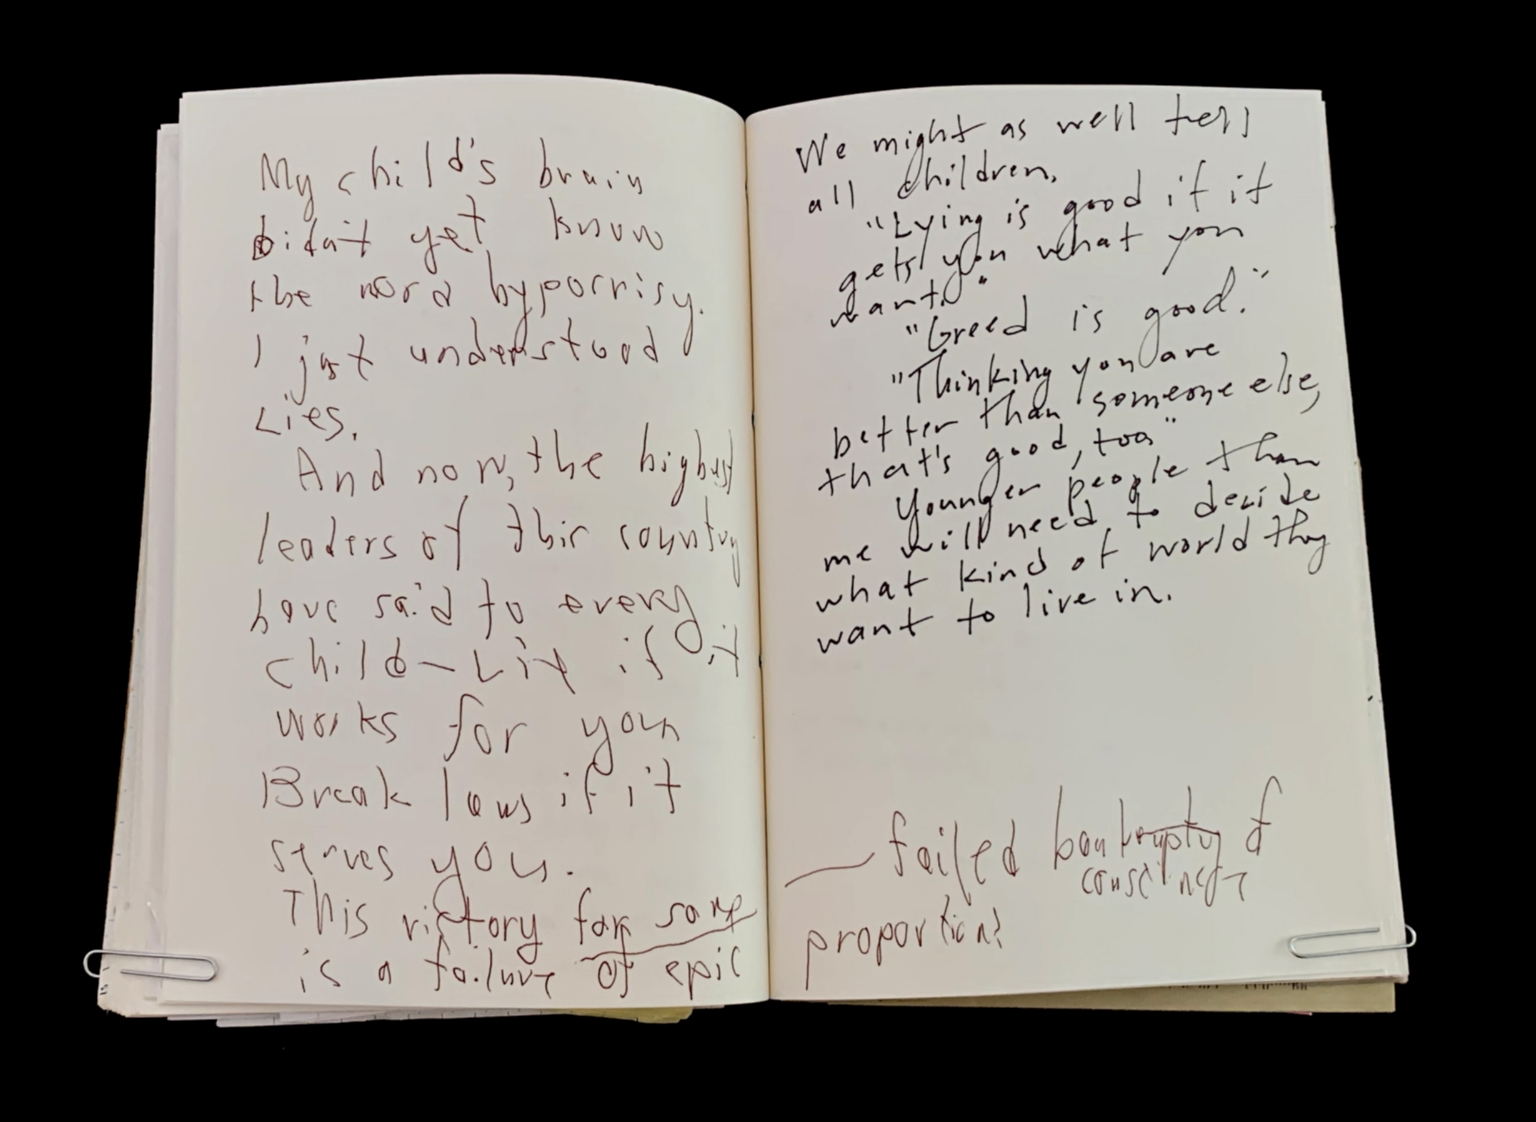 My child's brain
didn't yet know
the word hypocrisy.
I just understood
Lies.
And now, the highest
leaders of this country
have said to every
child – Lie if it
works for you
Break laws if it
serves you.
This victory for some
is a failure of epic
We might as well tell
all children,
"Lying is good if it
gets you what you
want."
"Greed is good."
"Thinking you are
better than someone else,
that's good, too"
Younger people than
me will need to decide
what kind of world they
want to live in.
— failed bankruptcy of
proportions